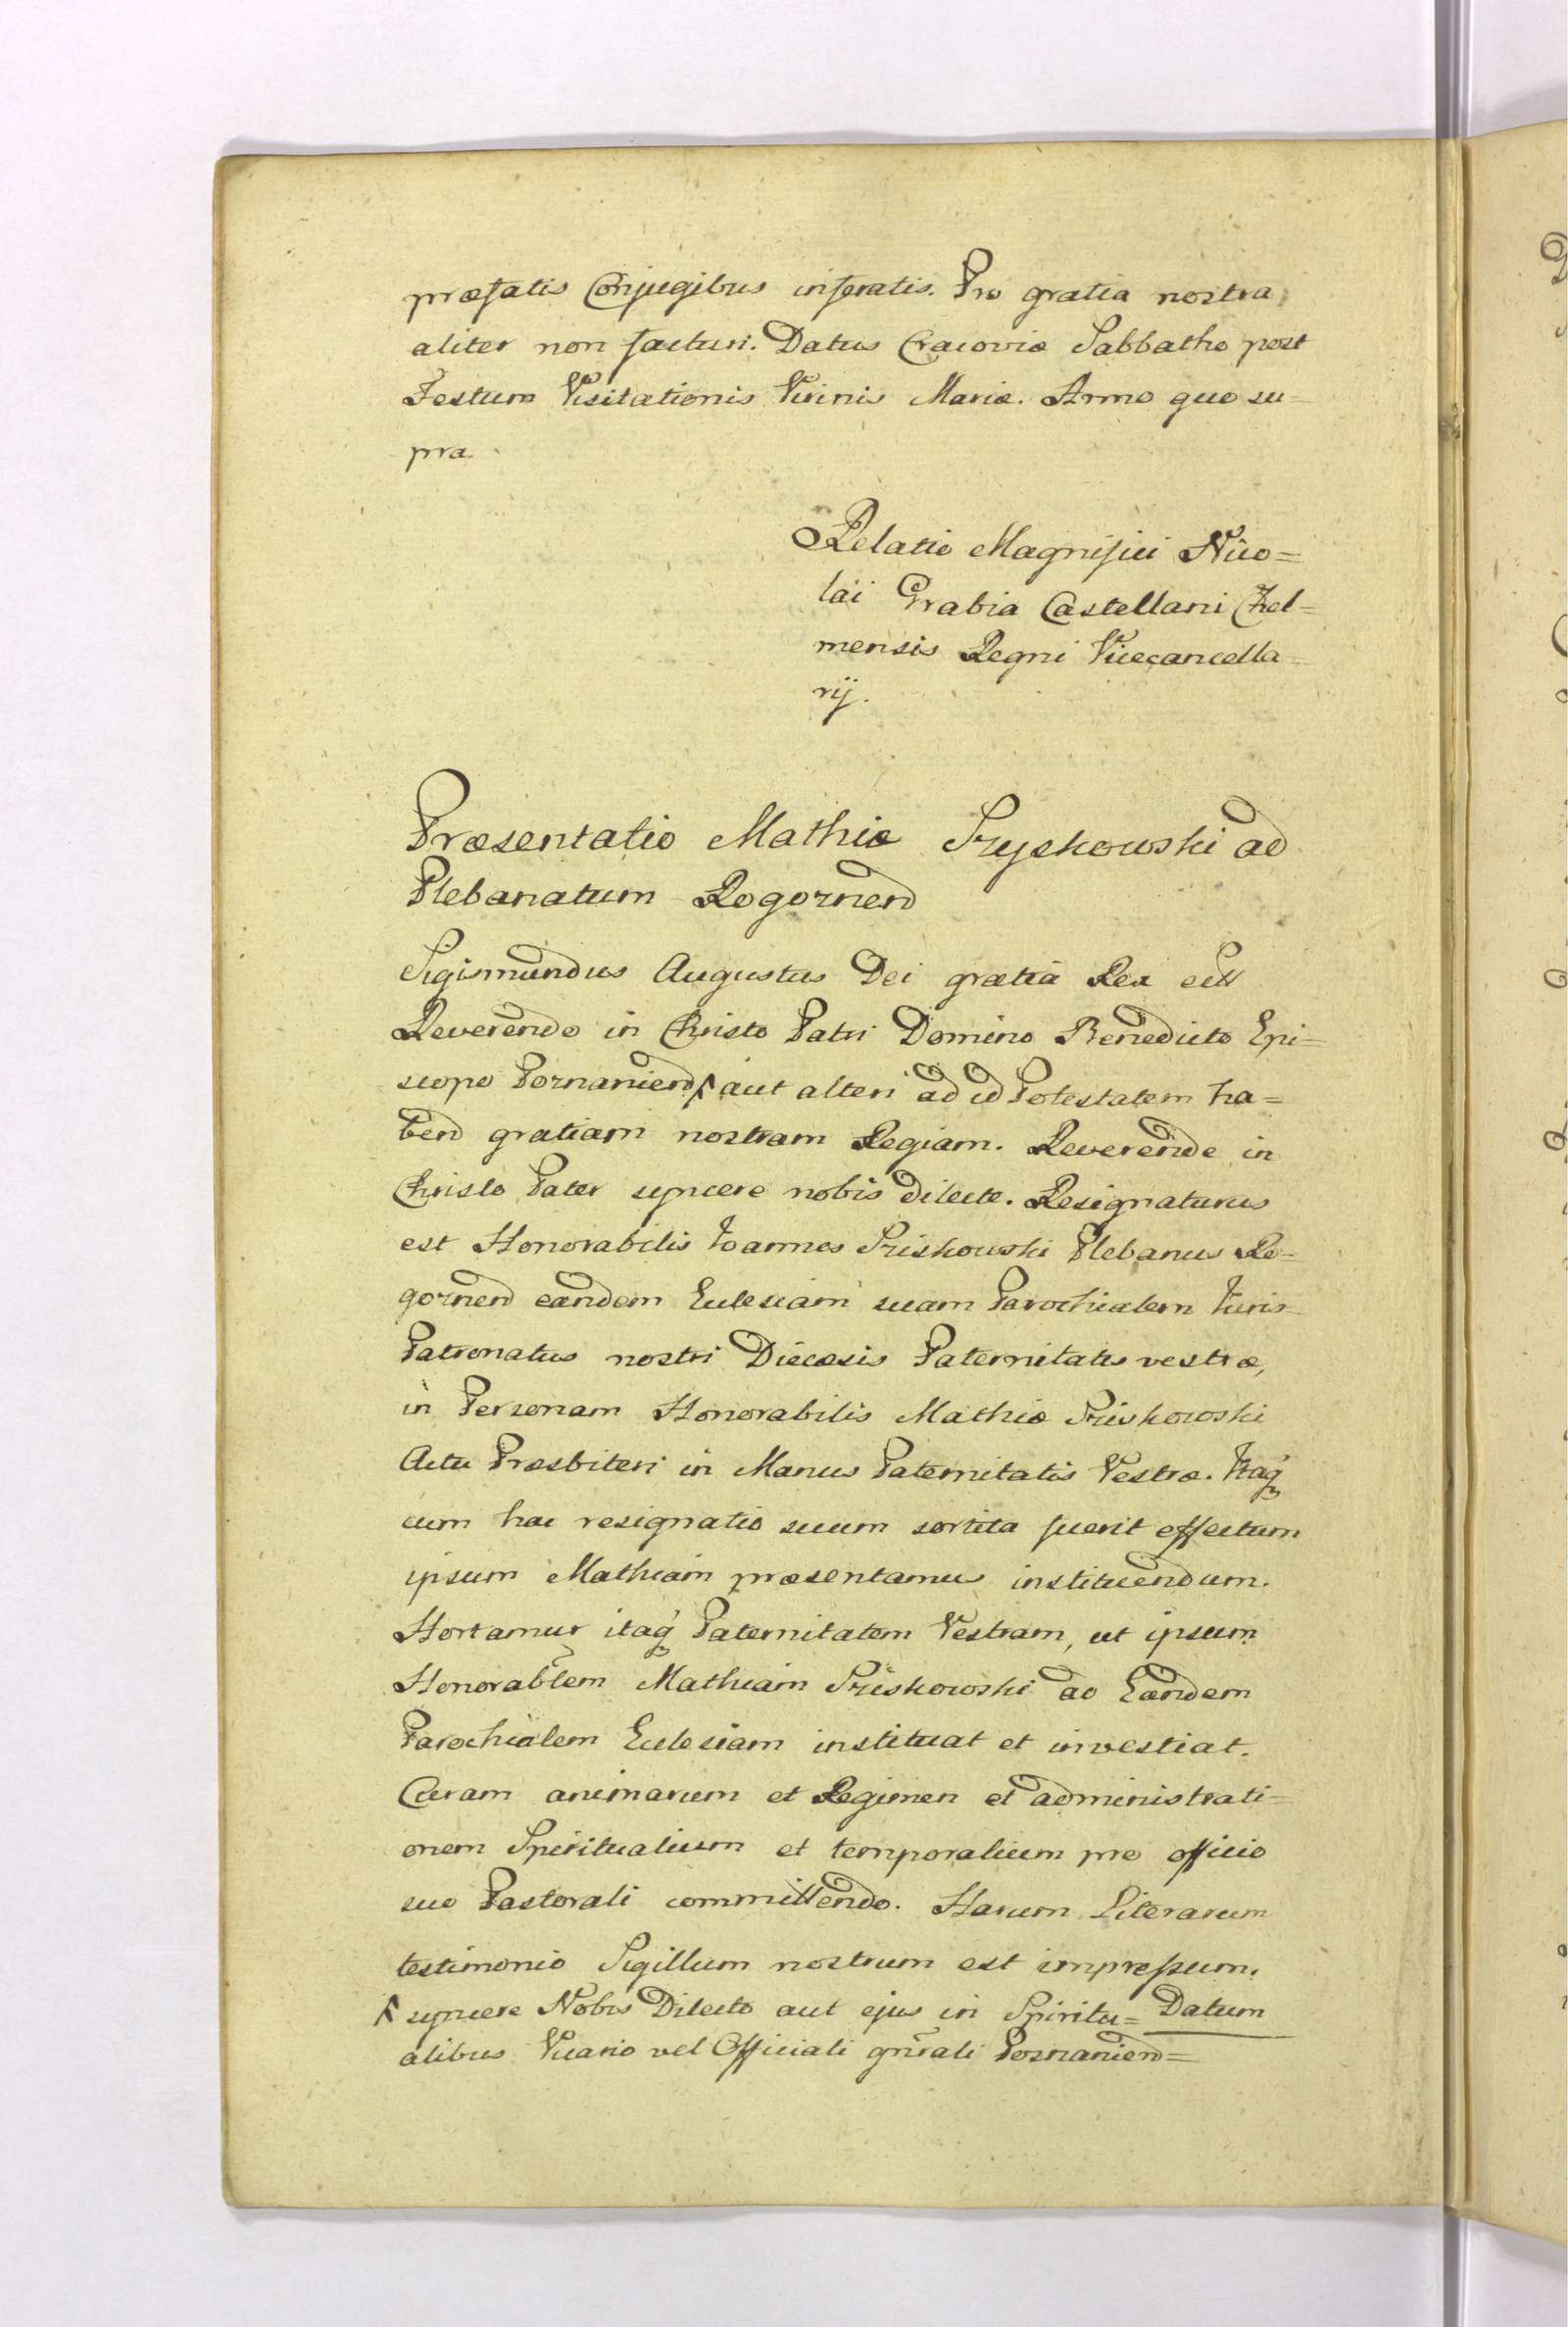 præfatis Conjugibus inferatis. Pro gratia nostra
aliter non facturi. Datus Cracoviæ Sabbatho post
Festum Visitationis Virinis Mariæ. Anno quo su-
pra.
Relatio Magnifici Nico=
lai Grabia Castellani Chel=
mensis Regni Vicecancella=
rij.
Præsentatio Mathiæ Szyskowski ad
Plebanatum Rogoznen
Sigismundus Augustus Dei gratia Rex
Reverendo in Christo Patri Domino Benedicto Epi-
scopo Poznanien aut alteri ad id Potestatem ha=
ben gratiam nostram Regiam. Reverende in
Christo Pater syncere nobis dilecte. Resignaturus
est Honorabilis Joannes Sziskowski Plebanus Ro-
goznen eandem Eclesiam suam Parochialem Juris
Patronatus nostri Diecæsis Paternitatis vestræ,
in Personam Honorabilis Mathiæ Sziskowski
Actu Præsbiteri in Manus Paternitatis Vestræ. Itaq
cum hac resignatio suum sortita fuerit effectum
ipsum Mathiam præsentamus instituendum.
Hortamur itaq Paternitatem Vestram, ut ipsum
Honorablem Mathiam Sziskowski ad Eandem
Parochialem Eclesiam instituat et investiat.
Curam animarum et Regimen et administrati-
onem Spiritualium et temporalium pro officio
suo Pastorali committendo. Harum Literarum
testimonio Sigillum nostrum est impressum.
syncere Nobis Dilecto aut ejus in Spiritu= Datum
alibus Vicario vel Officiali gnrali Poznanien=